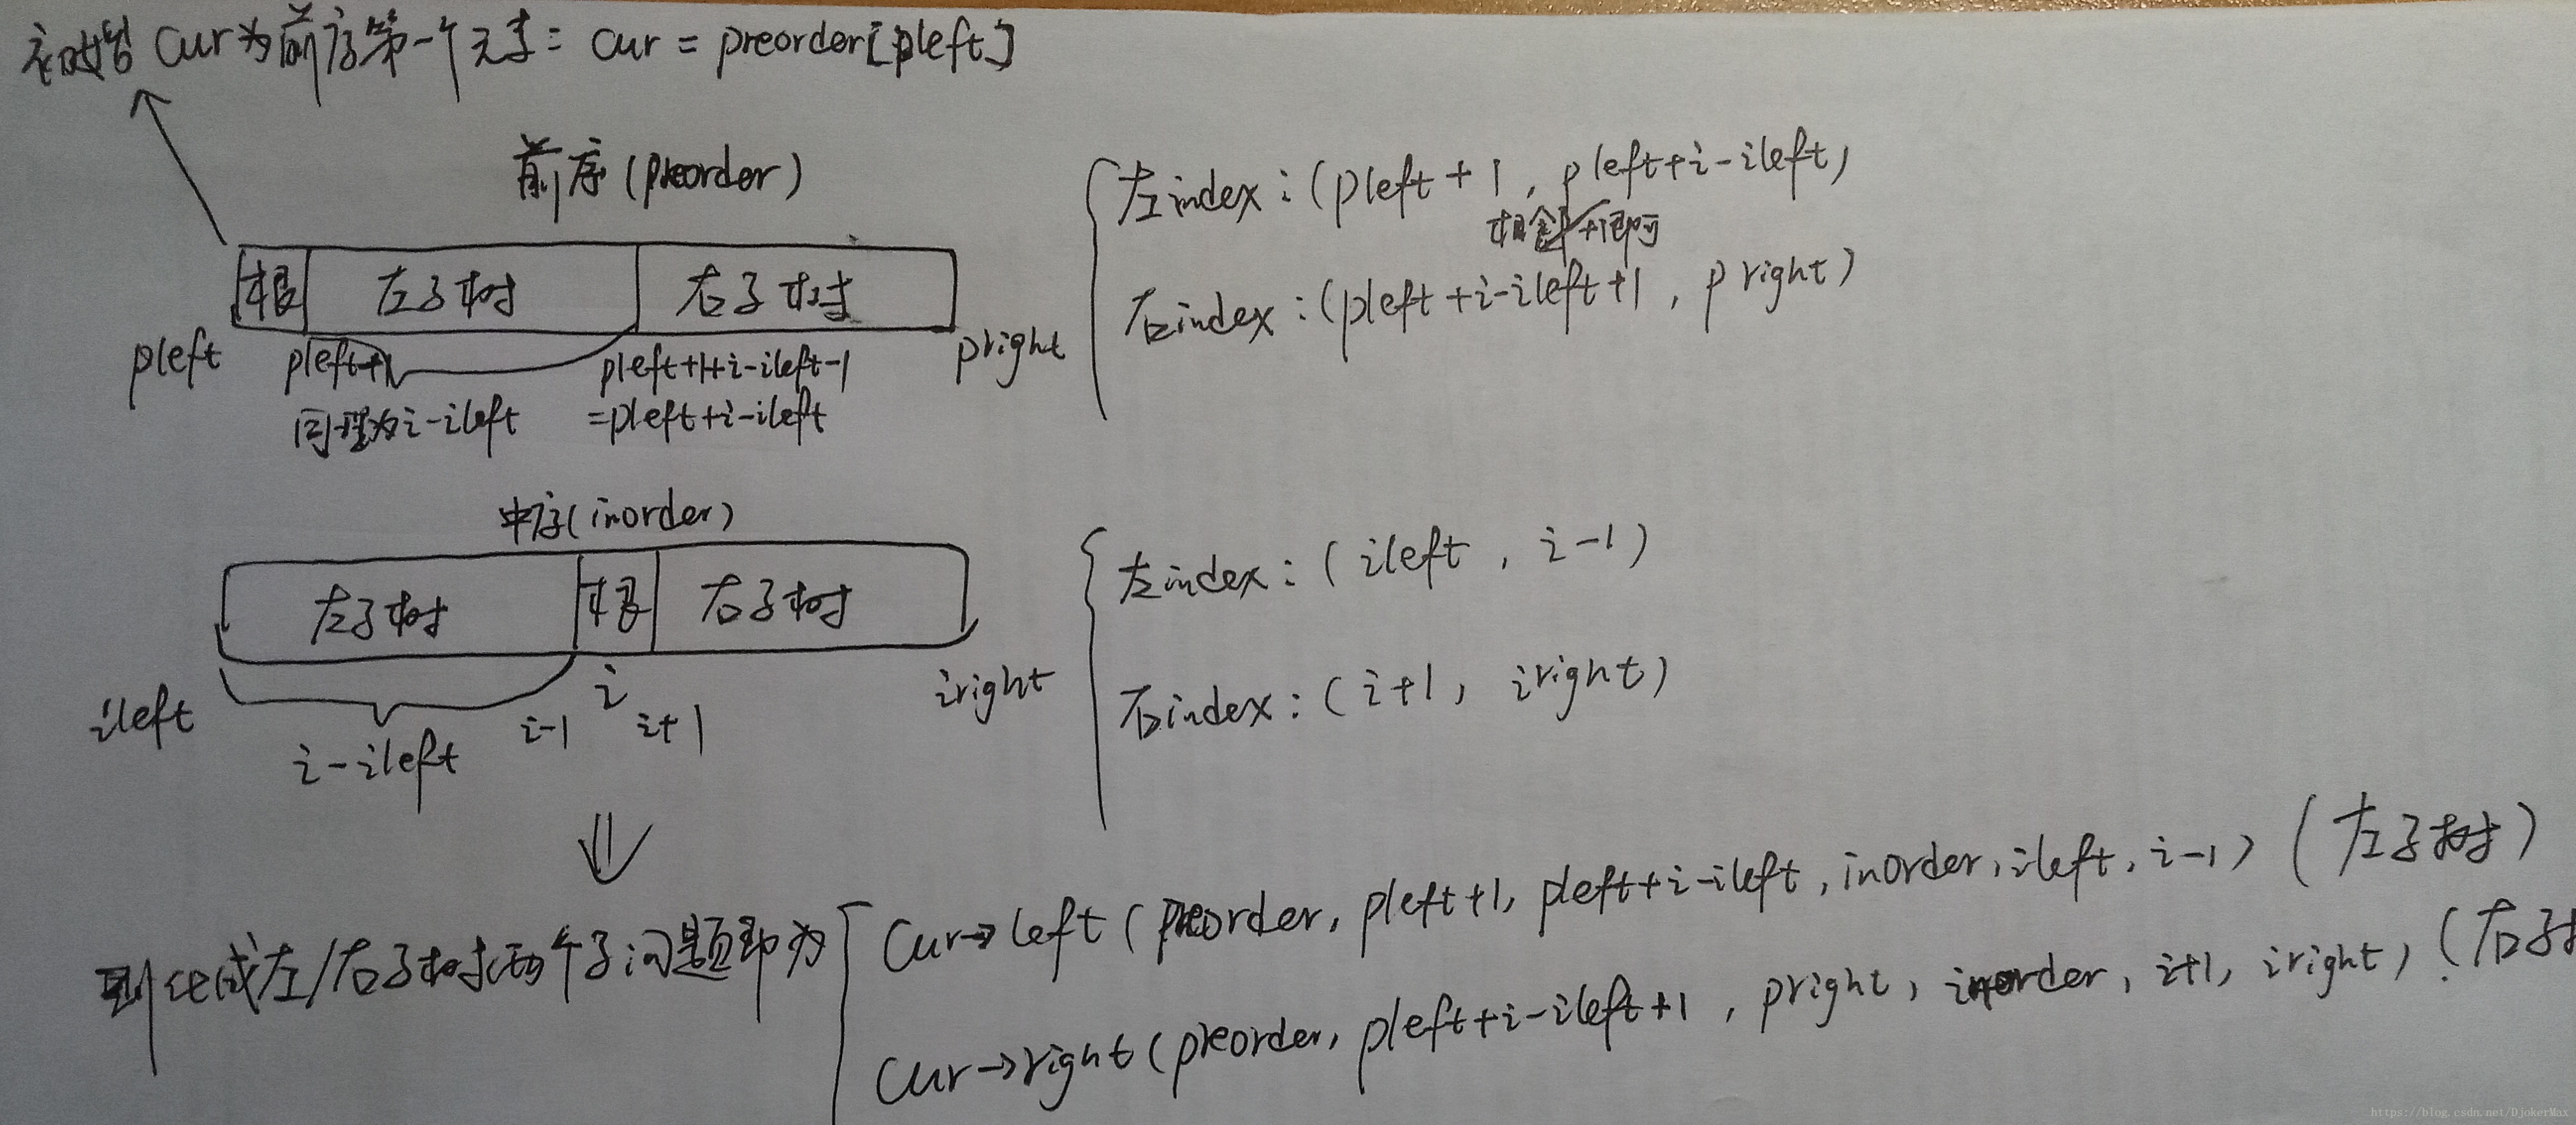 初始 cur为前序第一个元素: cur = preorder[pleft]
前序(preorder)
根 左子树 右子树
pleft pleft+1 pleft+1+i-ileft-1 pright
同理为i-ileft =pleft+i-ileft
左index:(pleft+1, pleft+i-ileft)
右index:(pleft+i-ileft+1, pright)
中序(inorder)
左子树 根 右子树
ileft i-1 i i+1 iright
i-ileft
左index:(ileft, i-1)
右index:(i+1, iright)
⇓
则 成左/右子树两个子问题即为
cur→left(preorder, pleft+1, pleft+i-ileft, inorder, ileft, i-1) (左子树)
cur→right(preorder, pleft+i-ileft+1, pright, inorder, i+1, iright) (右子
https://blog.csdn.net/DjokerMax